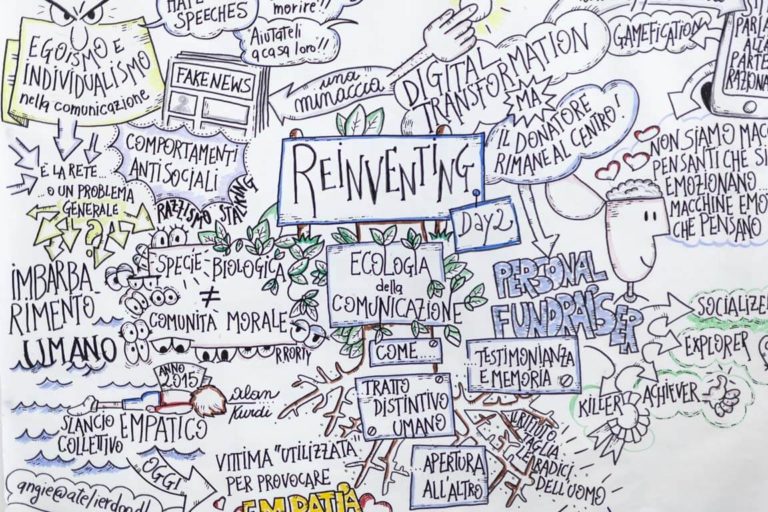 HATE
SPEECHES
morire!!
"Aiutateli
a casa loro!!
EGOISMO E
INDIVIDUALISMO
nella comunicazione
FAKE NEWS
una
minaccia
DIGITAL
TRANSFORMATION
MA
IL DONATORE
RIMANE AL CENTRO!
GAMEFICATION
PARLA
ALLA
PARTE
RAZIONA
COMPORTAMENTI
ANTISOCIALI
RAZZISMO
STALKING
È LA RETE...
...O UN PROBLEMA
GENERALE
?
REINVENTING
Day 2
NON SIAMO MACC
PENSANTI CHE SI
EMOZIONANO...
MACCHINE EMO
CHE PENSANO
IMBARBA-
RIMENTO
UMANO
SPECIE BIOLOGICA
≠
COMUNITÀ MORALE
RRORTY
ECOLOGIA
della
COMUNICAZIONE
COME...
TRATTO
DISTINTIVO
UMANO
APERTURA
ALL'ALTRO
TESTIMONIANZA
E MEMORIA
PERSONAL
FUNDRAISER
SOCIALIZE
EXPLORER
ACHIEVER
KILLER
ANNO
2015
Alan
Kurdi
SLANCIO EMPATICO
COLLETTIVO
OGGI
angie@atelierdood
VITTIMA "UTILIZZATA"
PER PROVOCARE
EMPATIA
TAGLIA
LE RADICI
DELL'UOMO